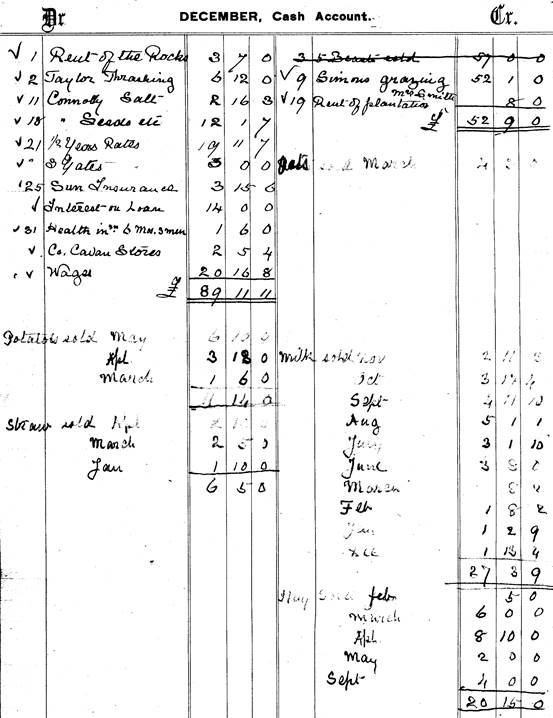 Dr DECEMBER, Cash Account. Cr.
√ 1 Rent of the Rocks 3 7 0
√ 2 Taylor Thrashing 6 12 0
√ 11 Connolly Salt 2 16 3
√ 18 " Seeds etc 12 1 7
√ 21 1/2 Years Rates 19 11 7
√ " 3 Gates 3 0 0
25 Sun Insurance 3 15 6
√ Interest on Loan 14 0 0
√ 31 Health insce 6 Mos. 3 men 1 6 0
√ Co. Cavan Stores 2 5 4
√ Wages 20 16 8
£ 89 11 11
Potatoes sold May 6 10 0
Apl 3 18 0
March 1 6 0
11 14 0
Straw sold Apl 2 10 0
March 2 5 0
Jan 1 10 0
6 5 0
3 5 Beasts sold 57 0 0
√ 9 Simons grazing 52 1 0
√ 19 Rent of plantation Mrs Smith 8 0
£ 52 9 0
Oats sold March 4 2 0
Milk sold Nov 2 11 8
Oct 3 17 4
Sept 4 11 10
Aug 5 1 1
July 3 1 10
June 3 8 0
March 8 2
Feb 1 8 2
Jan 1 2 9
Dec 1 13 4
27 3 9
Hay sold Febr 5 0
March 6 0 0
Apl 8 10 0
May 2 0 0
Sept 4 0 0
20 15 0